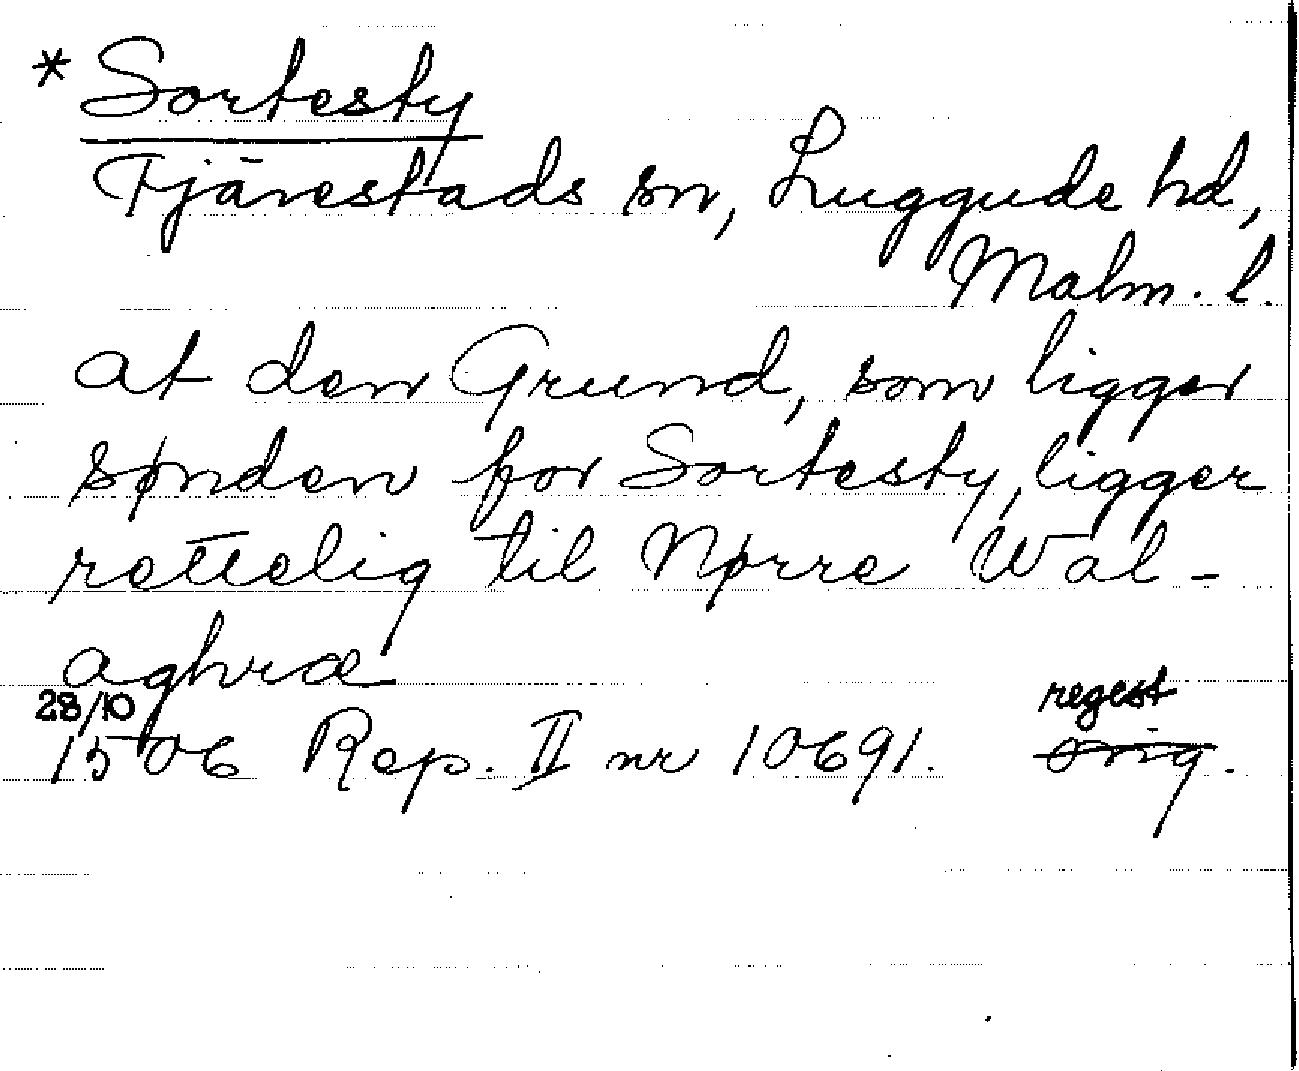 * Sortesty
Fjärestads sn, Luggude hd,
Malm. l.
at den Grund, som ligger
sønden for Sortesty, ligger
rettelig til Nørre Wal-
aghræ
28/10 regest
1506 Rep. II nr 10691. orig.